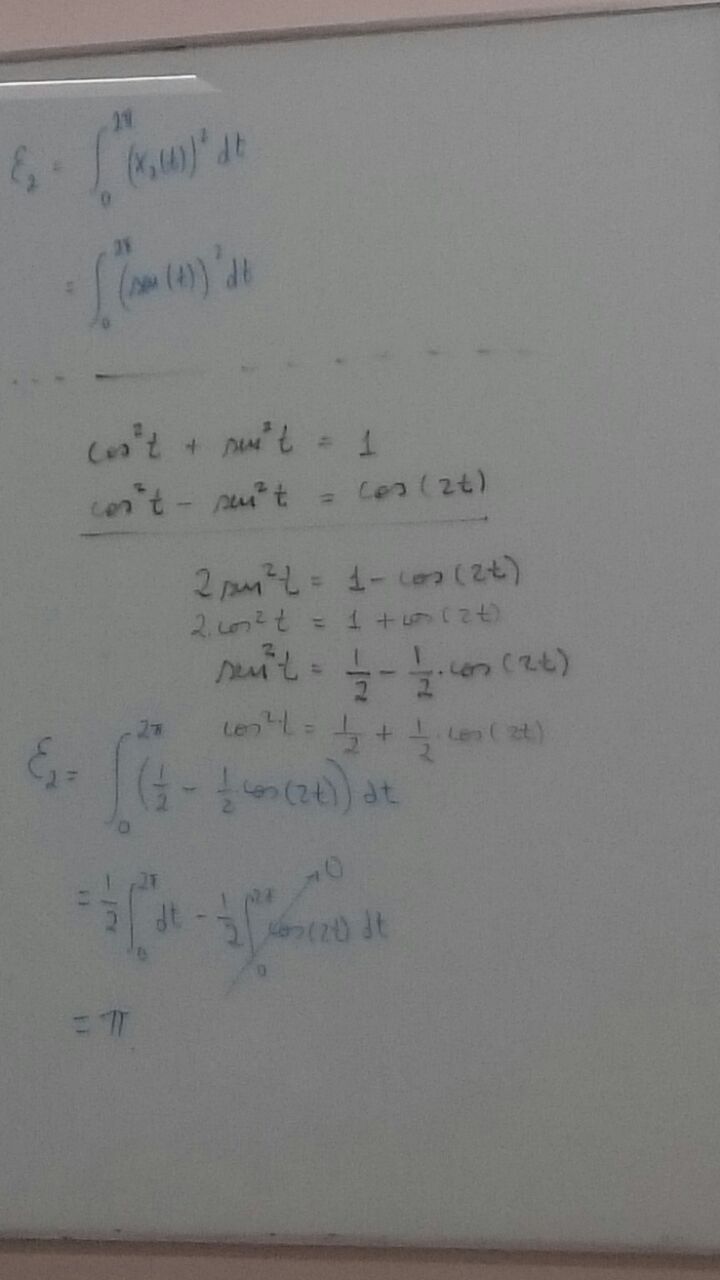 ℰ₂ = ∫₀^2π (x₂(t))² dt
= ∫₀^2π (sen(t))² dt
cos²t + sen²t = 1
cos²t - sen²t = cos(2t)
2 sen²t = 1 - cos(2t)
2.cos²t = 1 + cos(2t)
sen²t = 1/2 - 1/2.cos(2t)
cos²t = 1/2 + 1/2.cos(2t)
ℰ₂ = ∫₀^2π (1/2 - 1/2 cos(2t)) dt
= 1/2 ∫₀^2π dt - 1/2 ∫₀^2π cos(2t) dt → 0
= π